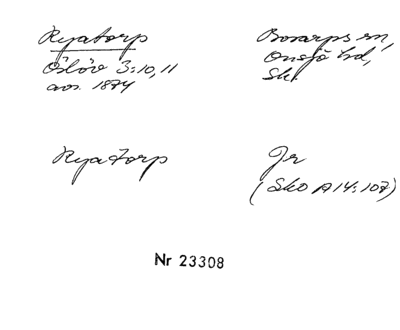 Ryatorp
Öslöv 3:10, 11
avs. 1874
Bosarps sn,
Onsjö hd,
Sk.
Ryatorp
Jr
(Sko A14:107)
Nr 23308